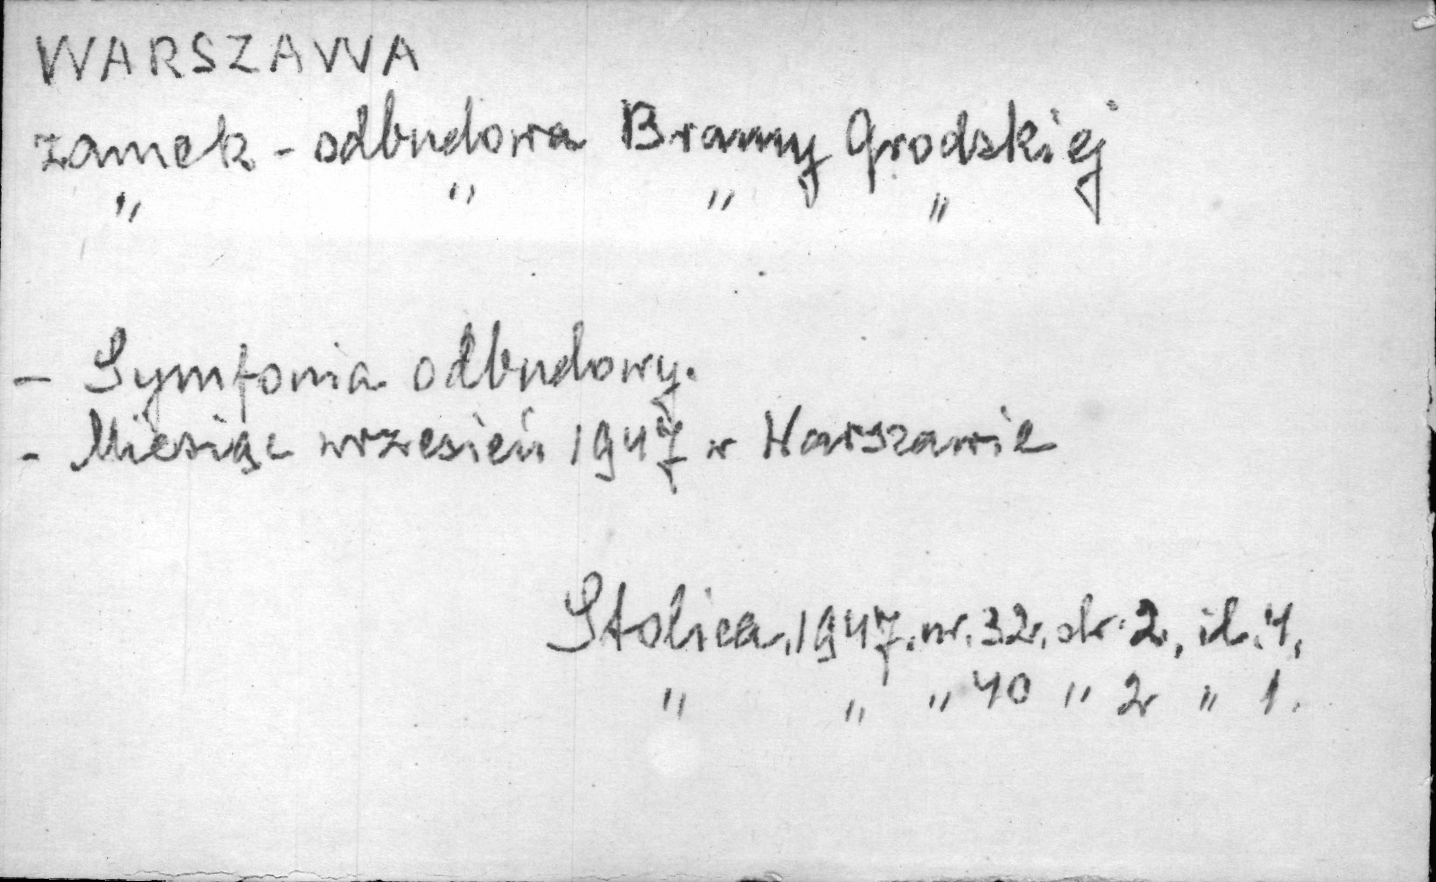 WARSZAWA
zamek - odbudowa Bramy Grodzkiej
" " " "
- Symfonia odbudowy.
- Miesiąc wrzesień 1947 w Warszawie
Stolica, 1947, nr. 32, str. 2, il. 4,
" " " 40 " 2 " 1.